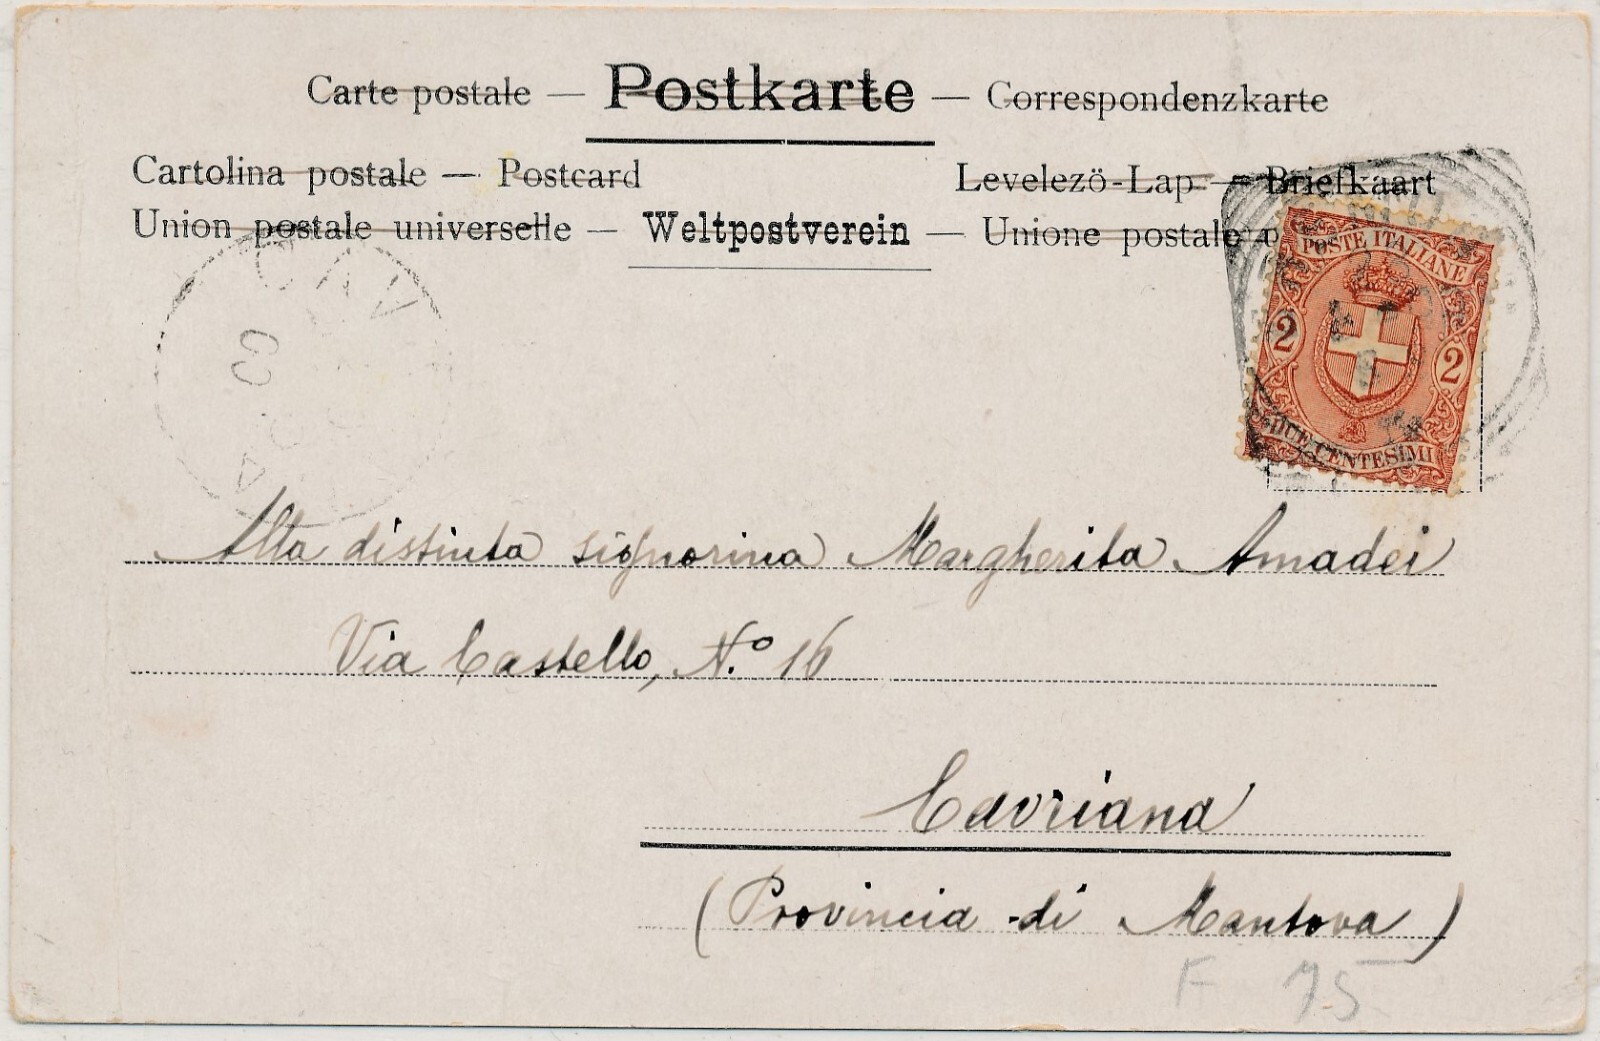 Carte postale — Postkarte — Correspondenzkarte
Cartolina postale — Postcard
Levelezö-Lap — Briefkaart
Union postale universelle — Weltpostverein — Unione postale
POSTE ITALIANE
2 2
DUE CENTESIMI
CAV
Alta distinta signorina Margherita Amadei
Via Castello, N.º 16
Cavriana
(Provincia di Mantova)
F 75